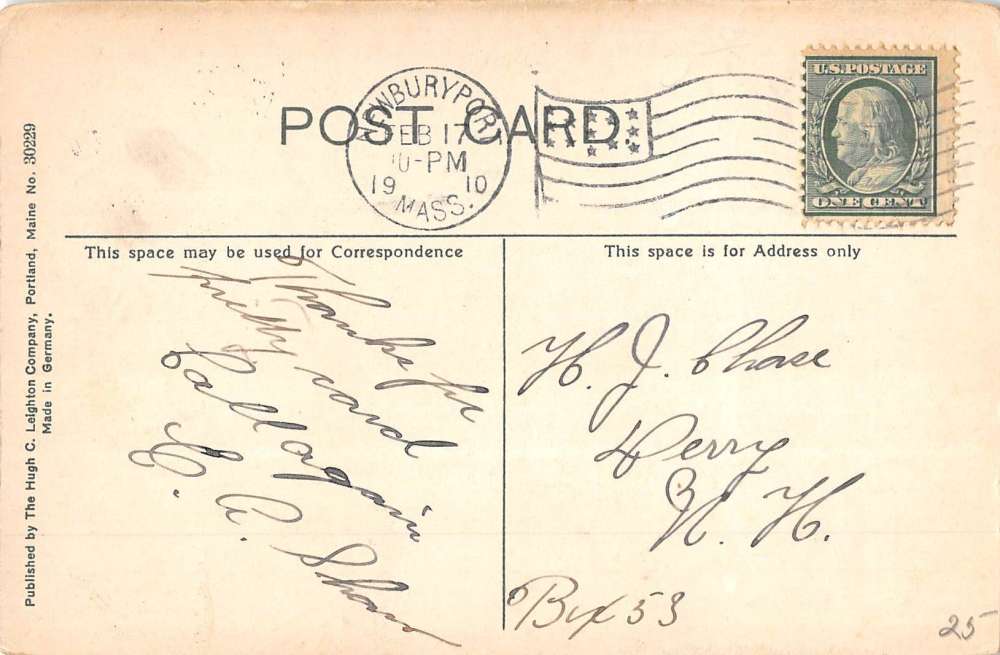 POST CARD.
NEWBURYPORT
FEB 17
10-PM
19 10
MASS.
U.S. POSTAGE
ONE CENT
This space may be used for Correspondence
This space is for Address only
Thanks for
pretty card
Call again
E. A. Shaw
H. J. Chase
Derry
N. H.
Box 53
25
Published by The Hugh C. Leighton Company, Portland, Maine No. 30229
Made in Germany.